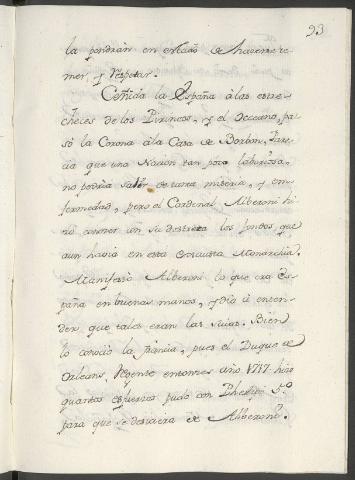 23
la pondràn en estado de hacerse te-
mer, y respetar.
Ceñida la España à las estre-
checes de los Pirineos, y el Occeano, pa-
só la Corona à la Casa de Borbon. Pare-
cia que una Nacion tan poco laboriosa,
no podria salir de tanta miseria, y en-
fermedad, pero el Cardenal Alberoni hi-
zo conocer con su destreza los fondos que
aun havia en esta exausta Monarchia.
Manifestò Alberoni lo que era Es-
paña en buenas manos, y dio à enten-
der que tales eran las suias. Bien
lo conociò la Francia, pues el Duque de
Orleans, Regente entonces año 1717. hizo
quantos esfuerzos pudo con Phelipe 5.º
para que se desaciera de Alberoni.